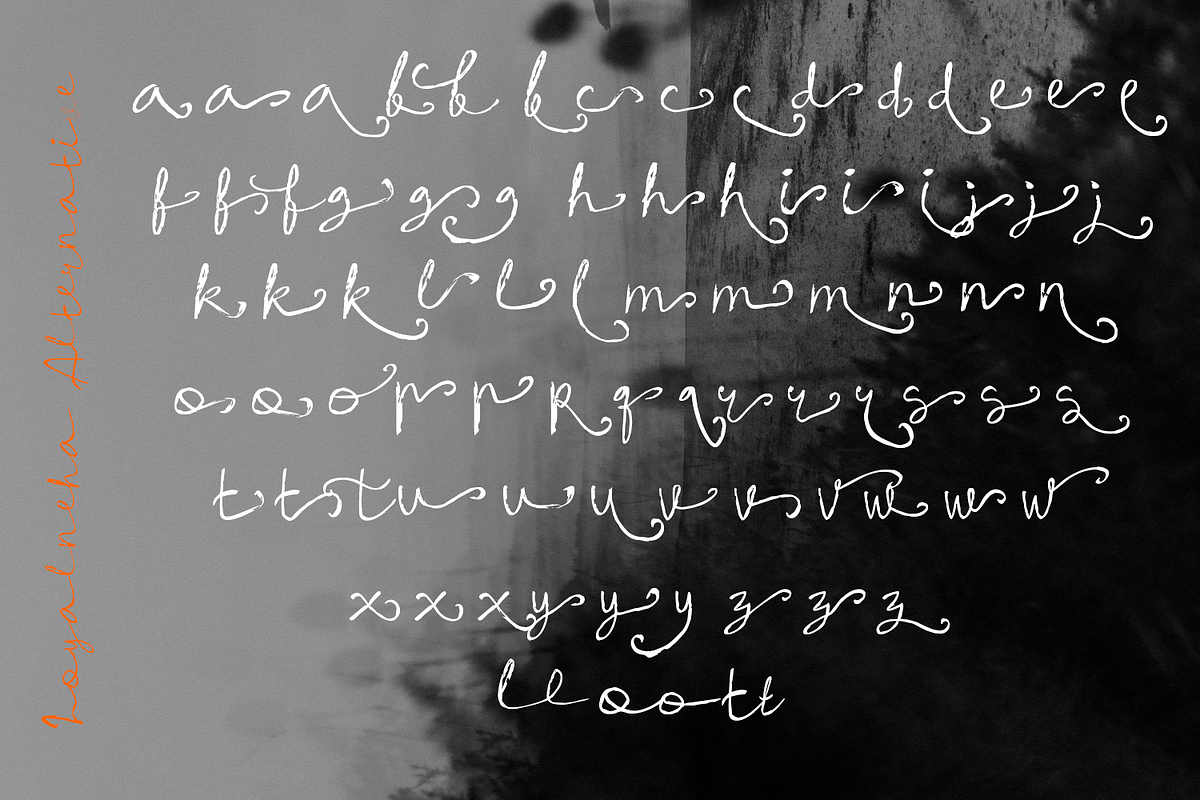 Alternative
a a a b b b c c c d d d e e e
f f f g g g h h h i i i j j j
k k k l l l m m m n n n
o o o p p p q q r r r s s s
t t t u u u v v v w w w
x x x y y y z z z
ll oo tt